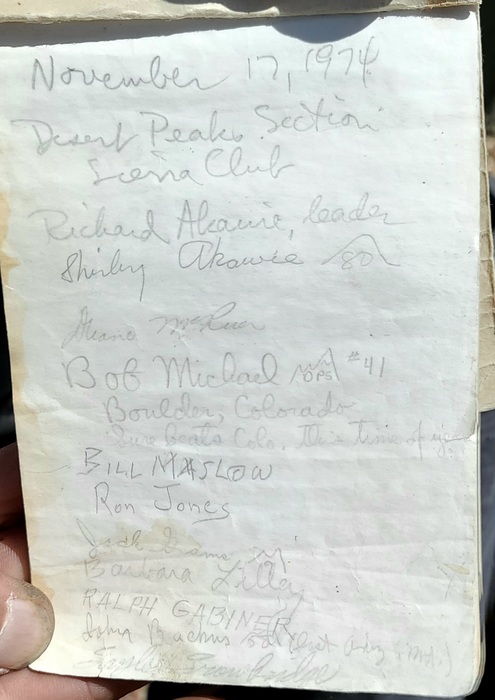 November 17, 1974
Desert Peaks Section
Sierra Club
Richard Akawie, leader
Shirley Akawie 80
Bob Michael DPS #41
Boulder, Colorado
Sure beats Colo. this time of
BILL MASLOW
Ron Jones
Barbara Lilley
RALPH GABINER
John Backus